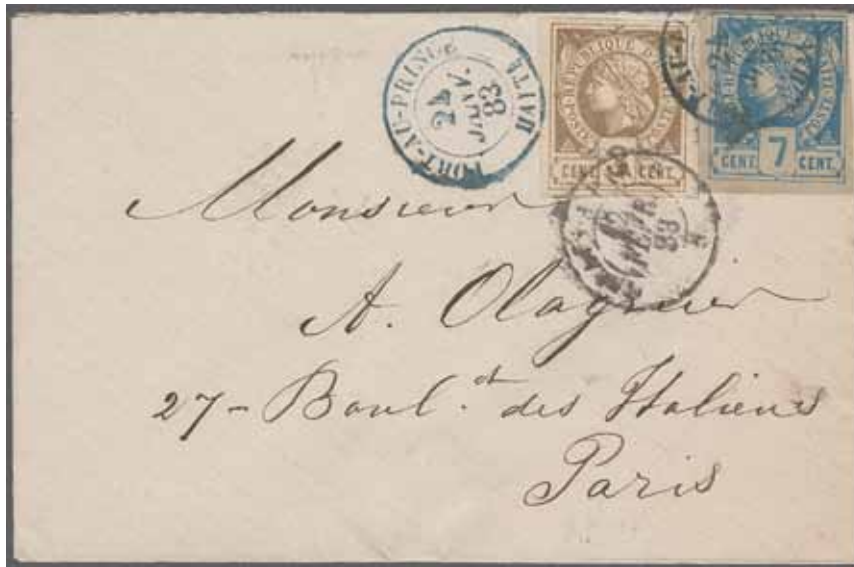 PORT-AU-PRINCE
24
JANV.
83
HAITI
POSTE RÉPUBLIQUE D'
CENT. CENT.
7
CENT. CENT.
83
Monsieur
A. Olagnier
27 - Boul.d des Italiens
Paris